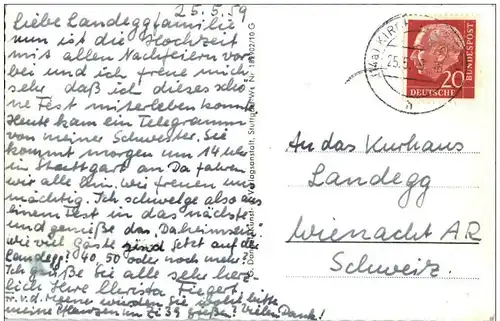 25.5.59
Liebe Landeggfamilie
nun ist die Hochzeit
mit allen Nachfeiern vor-
bei und ich freue mich
sehr daß ich dieses schö
ne Fest miterleben konnte
Heute kam ein Telegramm
von meiner Schwester. Sie
kommt morgen um 14 Uhr
in Stuttgart an Da fahren
wir alle hin. Wir freuen uns
mächtig. Ich schwelge also aus
einem Fest in das nächste
und genieße das Daheimsein!
Wie viel Gäste sind jetzt auf der
Landegg? 40, 50 oder noch mehr?
Ich grüße Sie alle sehr herz-
lich Ihre Christa
w.v.d. würden Sie wohl bitte
meine Pflanzen im Zi 39 gießen? Vielen Dank!
Verlagsanstalt, Stuttgart
25.5.59
20
DEUTSCHE
BUNDESPOST
An das Kurhaus
Landegg
Wienacht A.R.
Schweiz.